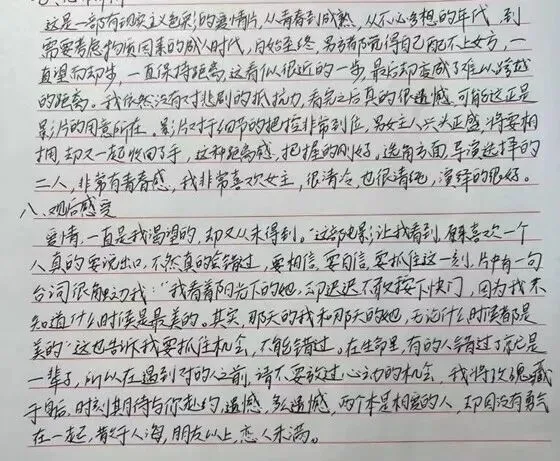 这是一部有现实主义色彩的爱情片，从青春到成熟，从不必多想的年代，到
需要考虑物质因素的成人时代，自始至终，男主都觉得自己配不上女方，一
直望而却步，一直保持距离，这看似很近的一步，最后却变成了难以跨越
的距离。我依然没有对悲剧的抵抗力，看完之后真的很遗憾，可能这正是
影片的用意所在。影片对于细节的把控非常到位，男女主人公头正盛，将要相
拥，却又一起收回了手，这种距离感，把握的刚好。选角方面，导演选择的
二人，非常有青春感，我非常喜欢女主，很清冷，也很清纯，演绎的很好。
八、观后感受
爱情，一直是我渴望的，却又从未得到。"这部电影，让我看到，原来喜欢一个
人真的要说出口，不然真的会错过，要相信，要自信，要抓住这一刻，片中有一句
台词很触动我："我看着阳光下的她，却迟迟不敢按下快门，因为我不
知道什么时候是最美的。其实，那天的我和那天的她，无论什么时候都是
美的"这也告诉我要抓住机会，不能错过。在生命里，有的人错过了就是
一辈子，所以在遇到对的人之前，请不要放过心动的机会，我将玫瑰藏
于身后，时刻期待与你赴约，遗憾，多么遗憾，两个本是相爱的人，却因没有勇气
在一起，散于人海，朋友以上，恋人未满。